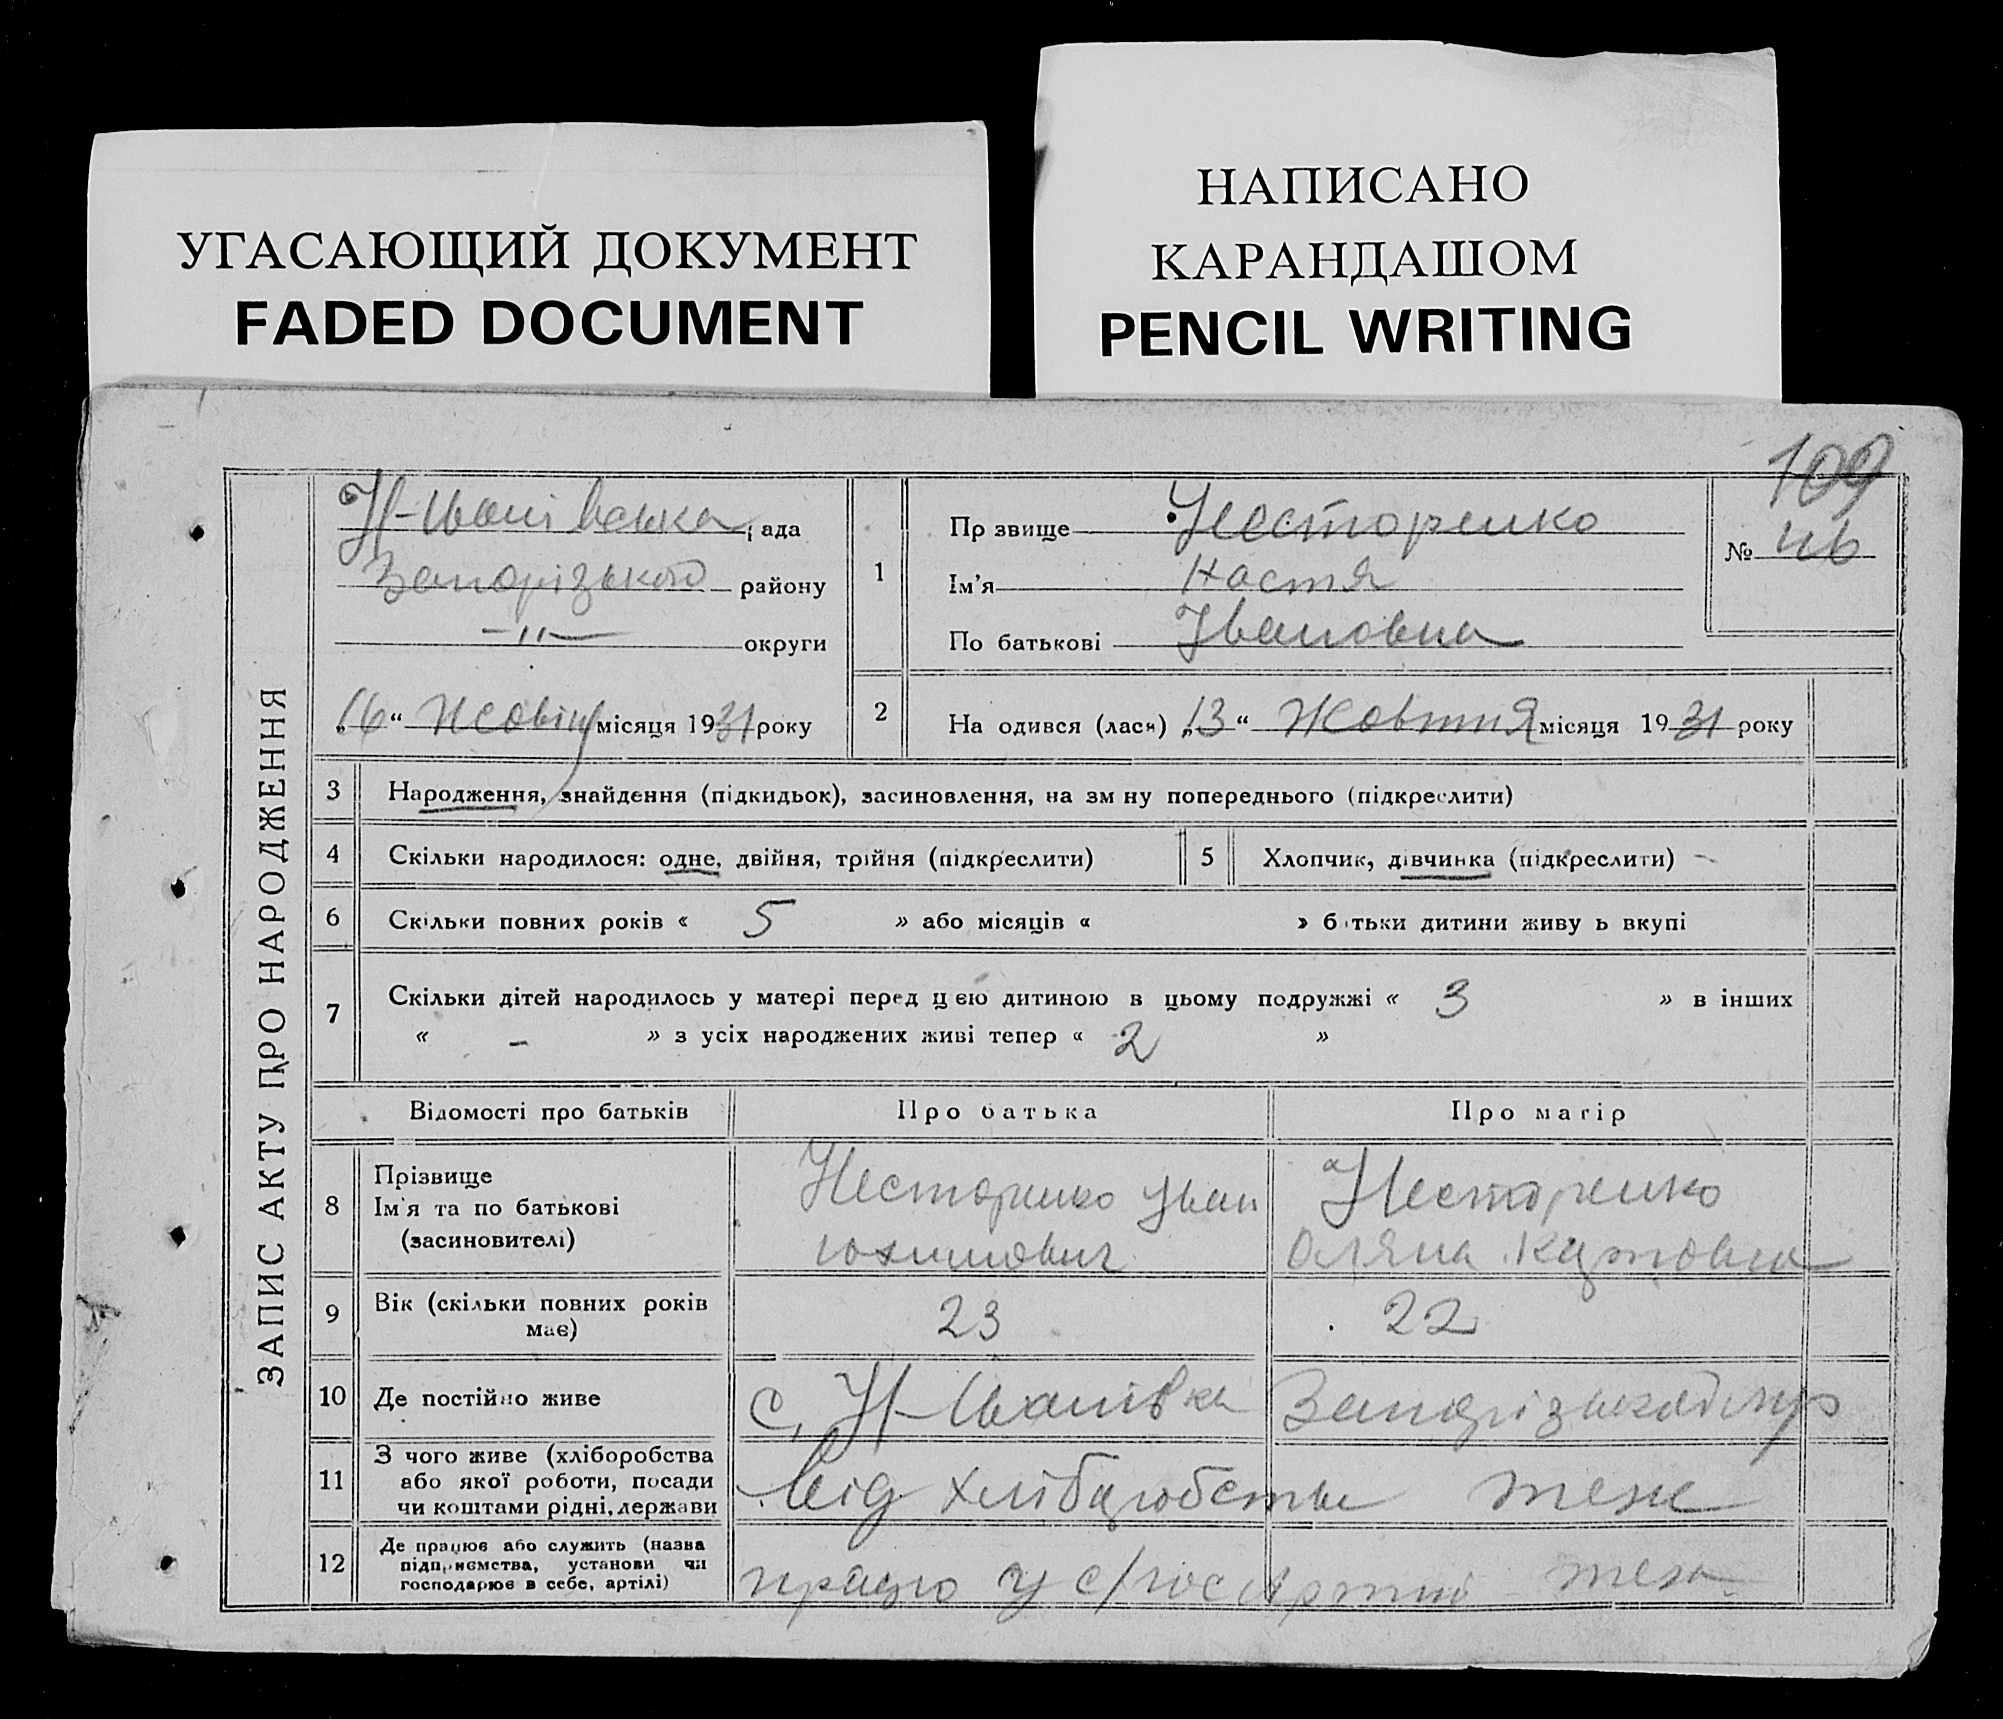 УГАСАЮЩИЙ ДОКУМЕНТ
FADED DOCUMENT
НАПИСАНО
КАРАНДАШОМ
PENCIL WRITING
109
ЗАПИС АКТУ ПРО НАРОДЖЕННЯ
Н-Іванівська рада
Запорізького району
—"— округи
„16“ Жовтня місяця 1931 року
1
Пр звище Несторенко
Ім'я Настя
По батькові Івановна
№ 46
2 На одився (лася) „13“ Жовтня місяця 1931 року
3 Народження, знайдення (підкидьок), засиновлення, на зм ну попереднього (підкреслити)
4 Скільки народилося: одне, двійня, трійня (підкреслити) 5 Хлопчик, дівчинка (підкреслити)
6 Скільки повних років « 5 » або місяців « » б тьки дитини живу ь вкупі
7 Скільки дітей народилось у матері перед цією дитиною в цьому подружжі « 3 » в інших
« - » з усіх народжених живі тепер « 2 »
Відомості про батьків Про батька Про матір
8 Прізвище
Ім'я та по батькові
(засиновителі)
Несторенко Іван
Юхимович
Несторенко
Оляна
9 Вік (скільки повних років
має)
23 22
10 Де постійно живе с. Н-Іванівка Запорізького
11 З чого живе (хліборобства
або якої роботи, посади
чи коштами рідні, держави
від хліборобства теж
12 Де працює або служить (назва
підприємства, установи чи
господарює в себе, артілі)
працю у с/гос Артілі теж